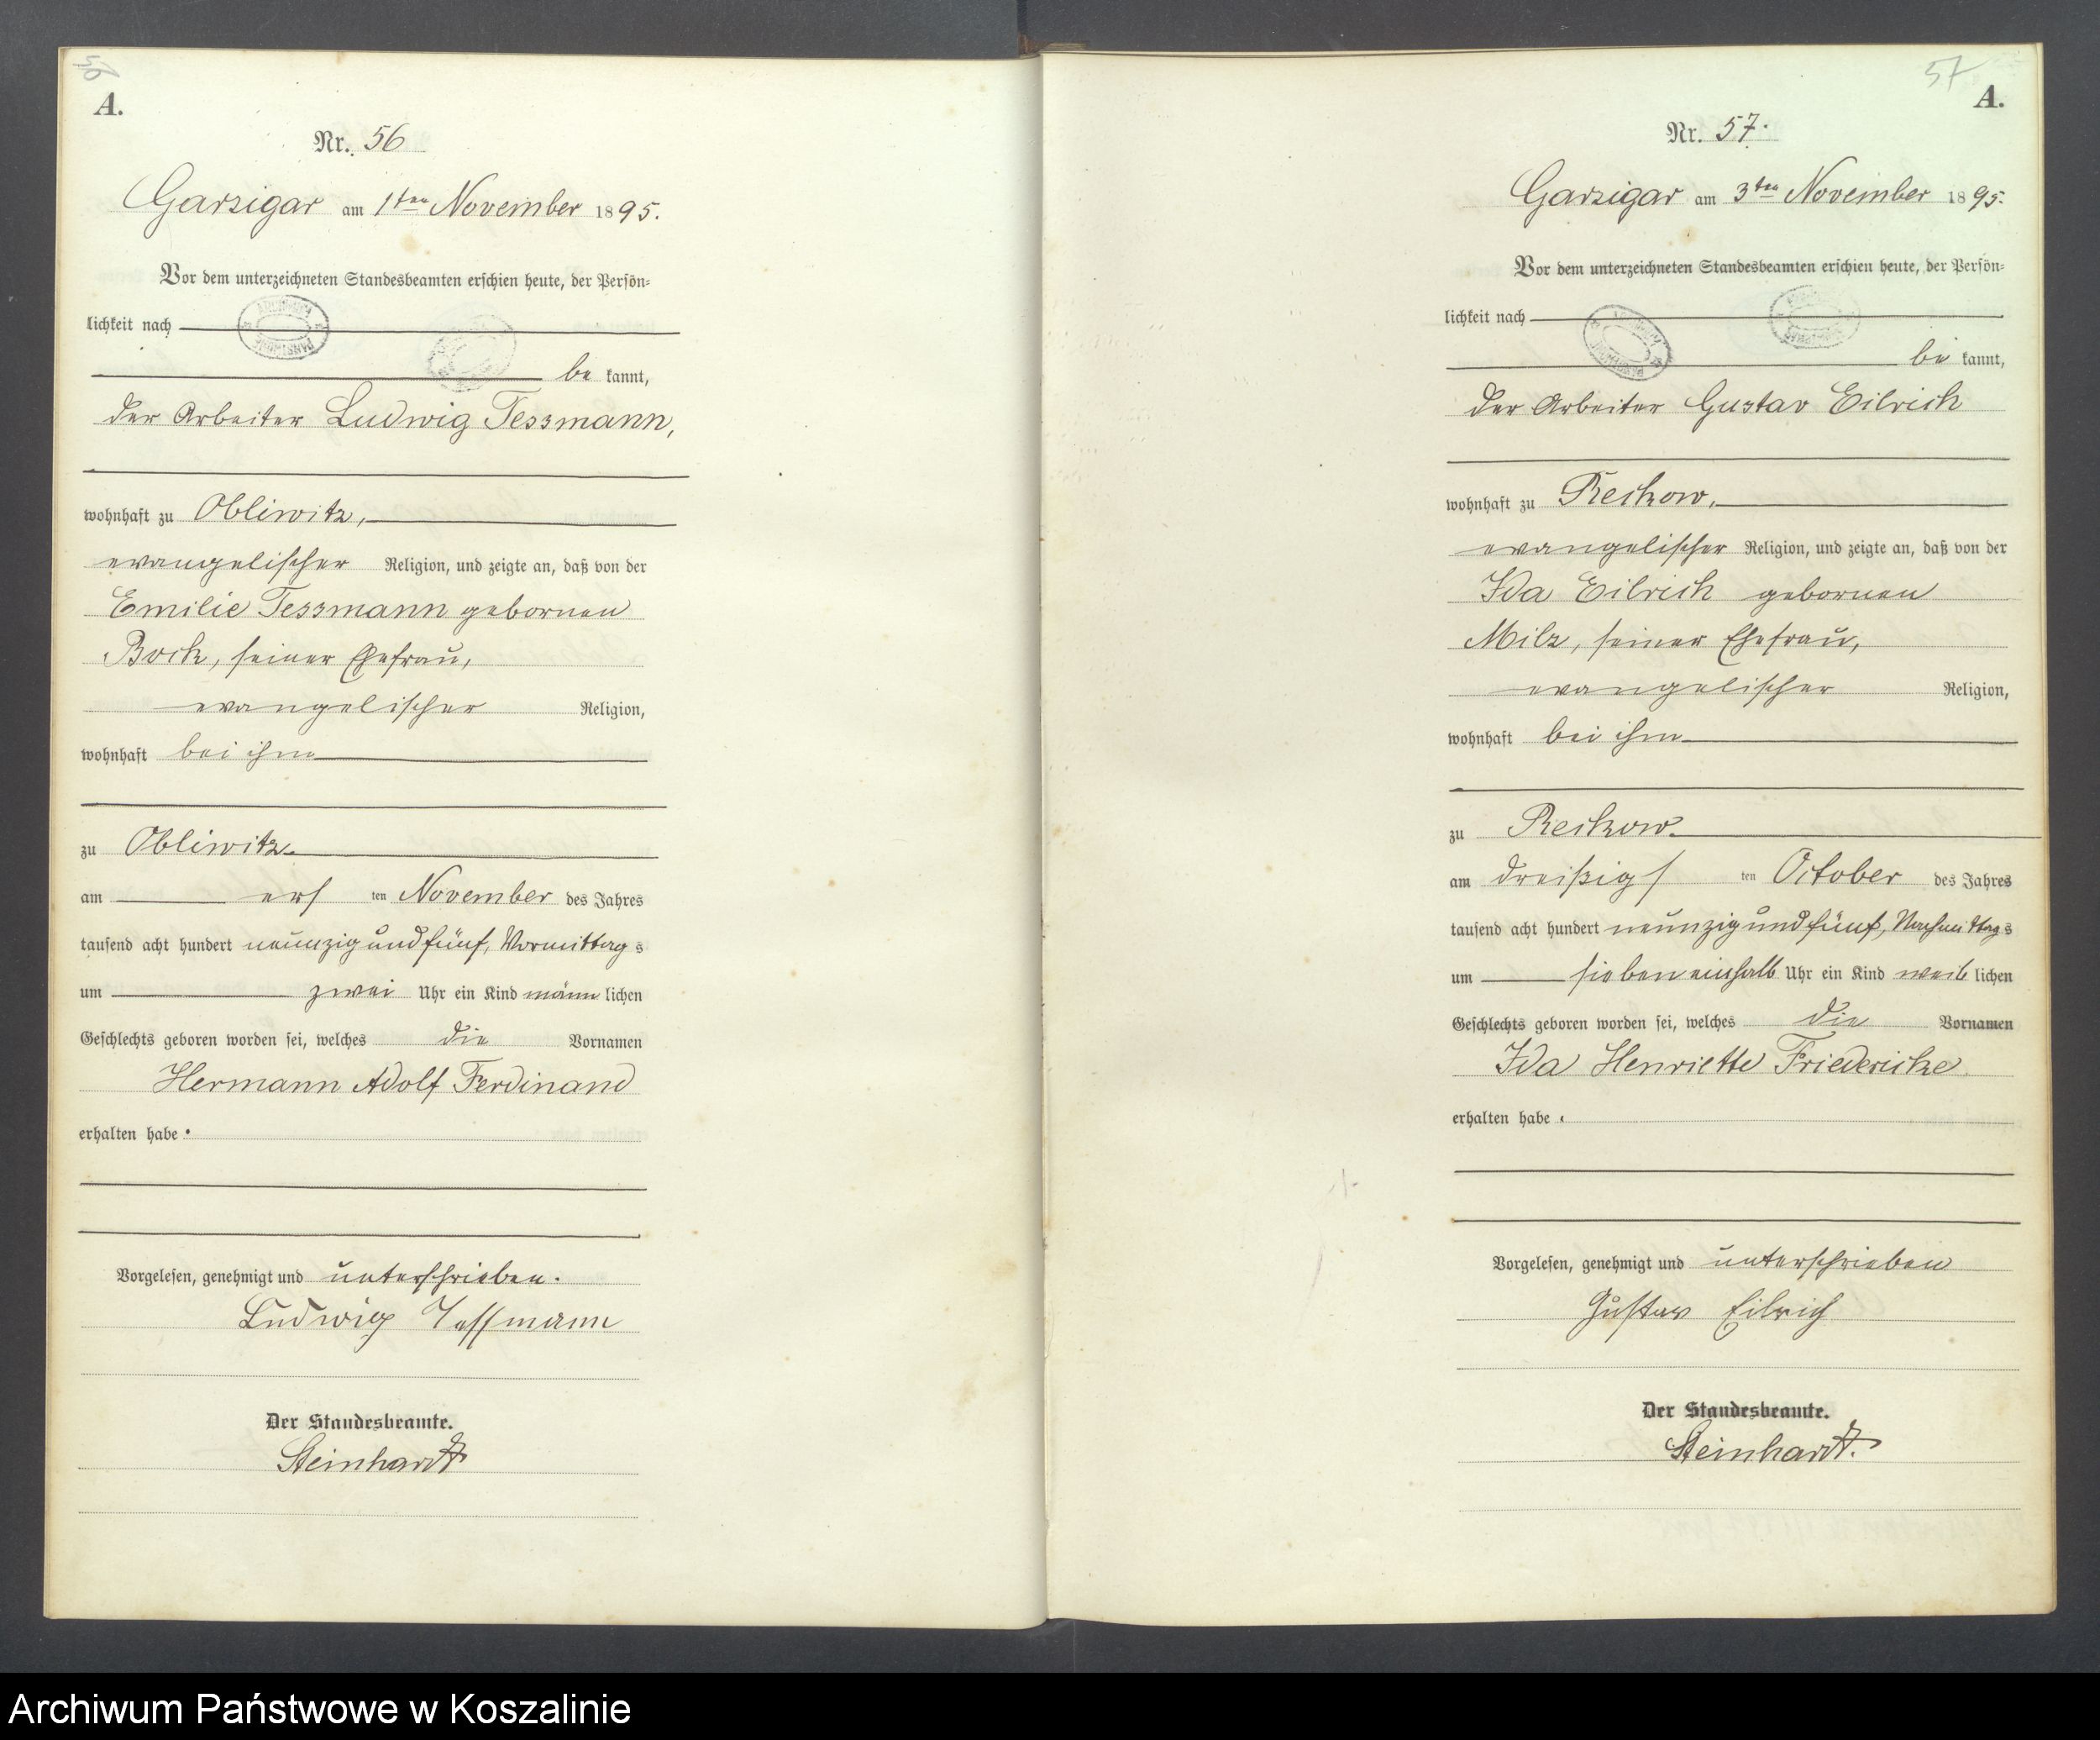 56
A.
Nr. 56
Garzigar am 1ten November 1895.
Vor dem unterzeichneten Standesbeamten erschien heute, der Persön-
lichkeit nach
be kannt,
der Arbeiter Ludwig Tessmann,
wohnhaft zu Obliwitz,
evangelischer Religion, und zeigte an, daß von der
Emilie Tessmann gebornen
Bock, seiner Ehefrau,
evangelischer Religion,
wohnhaft bei ihm
zu Obliwitz
am erst ten November des Jahres
tausend acht hundert neunzig und fünf, Vormittag s
um zwei Uhr ein Kind männ lichen
Geschlechts geboren worden sei, welches die Vornamen
Hermann Adolf Ferdinand
erhalten habe.
Vorgelesen, genehmigt und unterschrieben.
Ludwig Tessmann
Der Standesbeamte.
Steinhardt
57
A.
Nr. 57.
Garzigar am 3ten November 1895.
Vor dem unterzeichneten Standesbeamten erschien heute, der Persön-
lichkeit nach
be kannt,
der Arbeiter Gustav Eilrich
wohnhaft zu Reckow,
evangelischer Religion, und zeigte an, daß von der
Ida Eilrich gebornen
Milz, seiner Ehefrau,
evangelischer Religion,
wohnhaft bei ihm
zu Reckow
am dreißigs ten October des Jahres
tausend acht hundert neunzig und fünf, Nachmittag s
um sieben einhalb Uhr ein Kind weib lichen
Geschlechts geboren worden sei, welches die Vornamen
Ida Henriette Friedericke
erhalten habe.
Vorgelesen, genehmigt und unterschrieben
Gustav Eilrich
Der Standesbeamte.
Steinhardt.
Archiwum Państwowe w Koszalinie